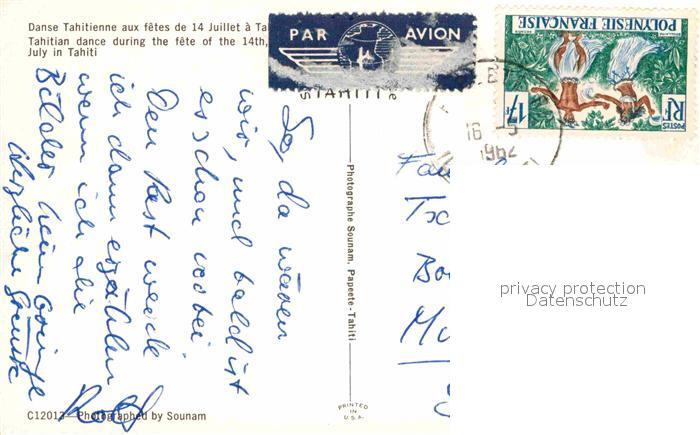 Danse Tahitienne aux fêtes de 14 Juillet à Ta
Tahitian dance during the fête of the 14th,
July in Tahiti
PAR AVION
TAHITI
16
1962
POLYNESIE FRANÇAISE
POSTES
RF
17F
So, da wären
wir, und bald ist
es schon vorbei.
Den Rest werde
ich dann erzählen
wenn ich die
Bilder heim bringe
Herzliche Grüsse
Photographe Sounam, Papeete-Tahiti
Fa
Bo
privacy protection
Datenschutz
C12013—Photographed by Sounam
PRINTED
IN
U.S.A.